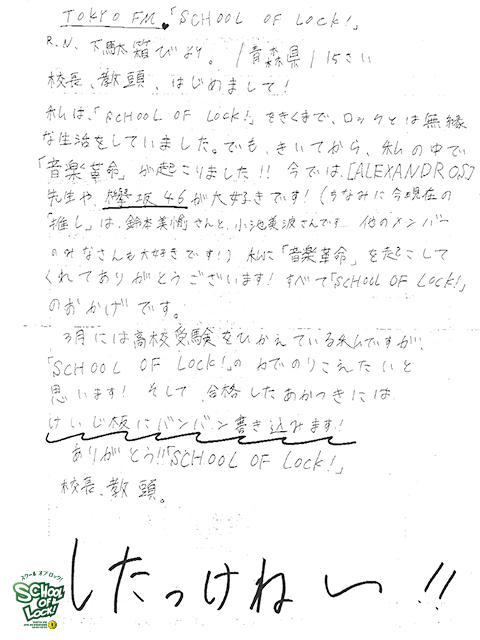 TOKYO FM 「SCHOOL OF LOCK!」
R.N. 下駄箱びより。/青森県/15さい
校長、教頭、はじめまして!
私は、「SCHOOL OF LOCK!」をきくまで、ロックとは無縁
な生活をしていました。でも、きいてから、私の中で
「音楽革命」が起こりました!! 今では、[ALEXANDROS]
先生や、欅坂46が大好きです!(ちなみに今現在の
「推し」は、鈴本美愉さんと、小池美波さんです 他のメンバー
のみなさんも大好きです!) 私に「音楽革命」を起こして
くれてありがとうございます! すべて「SCHOOL OF LOCK!」
のおかげです。
3月には高校受験をひかえている私ですが、
「SCHOOL OF LOCK!」の でのりこえたいと
思います! そして 合格したあかつきには
けいじ板にバンバン書き込みます!
ありがとう!!「SCHOOL OF LOCK!」
校長、教頭。
したっけねい!!
スクール オブ ロック!
SCHOOL OF LOCK!